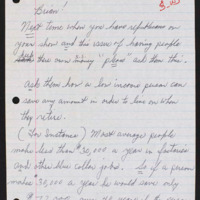 Brian!
Next time when you have republicans on
your show and the issue of having people
their own money "please" ask them this.
Ask them how a low income person can
save any amount in order to live on when
they retire.
(For Instance) Most average people
make less than $30,000 a year in factories
and other blue collar jobs. So if a person
makes $30,000 a year he would save only